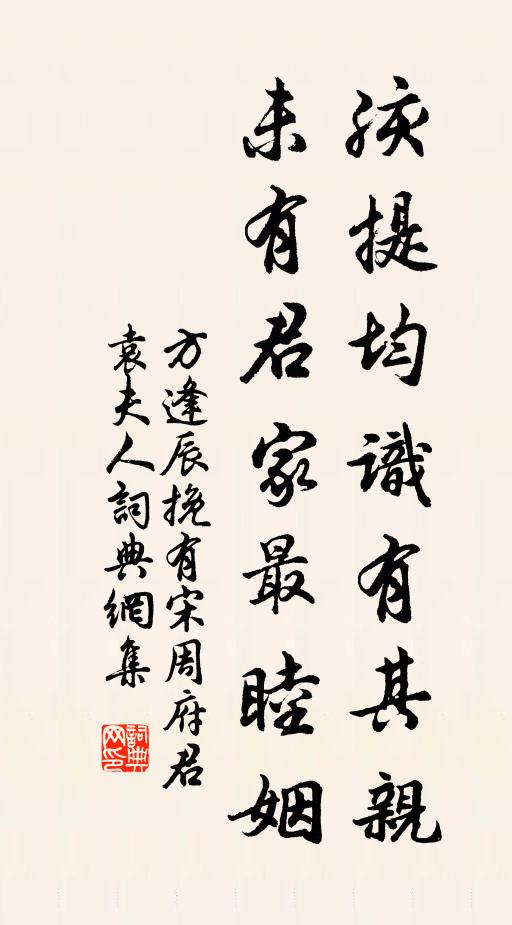 孩提均識有其親
未有君家最睦姻
方逢辰挽有宋周府君
袁夫人詞典網集
詞典網印